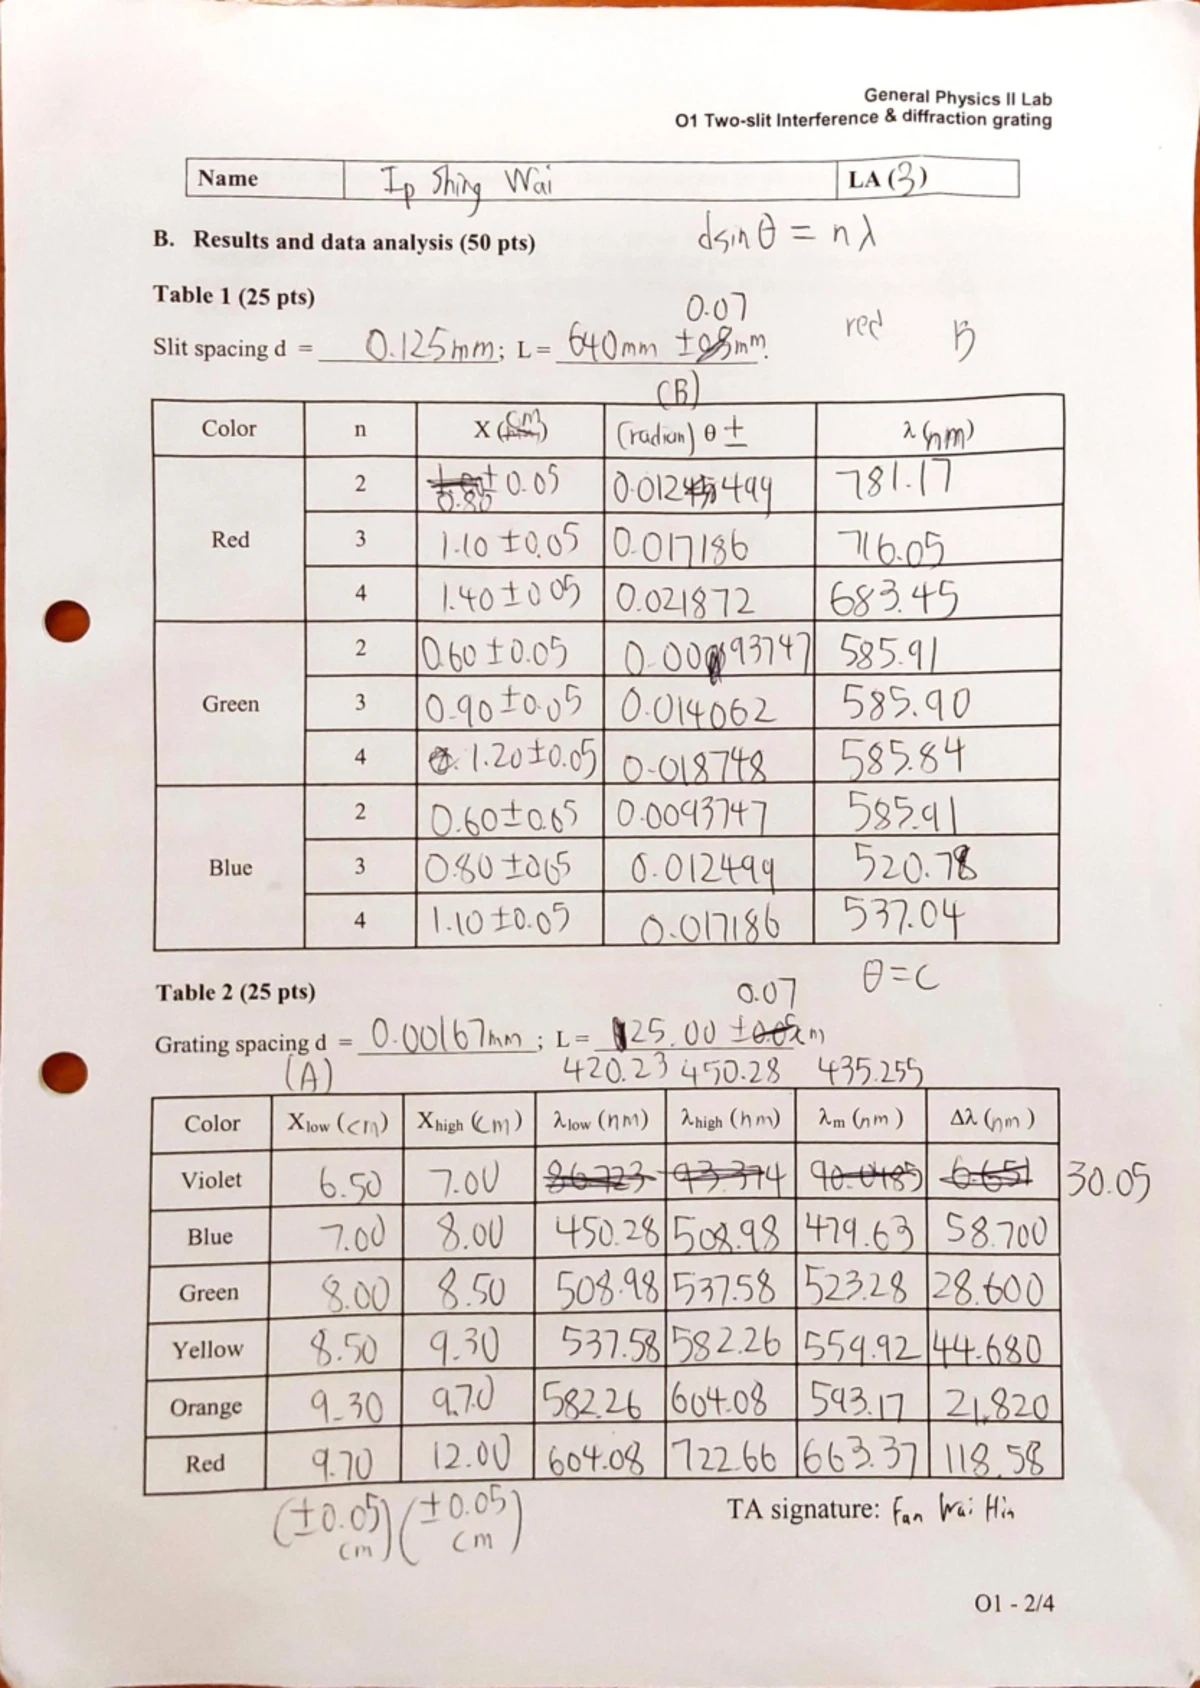 General Physics II Lab
O1 Two-slit Interference & diffraction grating
Name Ip Shing Wai LA (3)
B. Results and data analysis (50 pts) dsinθ = nλ
Table 1 (25 pts)
0.07 red B
Slit spacing d = 0.125mm; L = 640mm ± mm.
(B)
Color n X (cm) (radian) θ ± λ (nm)
Red
2 0.80 ± 0.05 0.012499 781.17
3 1.10 ± 0.05 0.017186 716.05
4 1.40 ± 0.05 0.021872 683.45
Green
2 0.60 ± 0.05 0.0093747 585.91
3 0.90 ± 0.05 0.014062 585.90
4 1.20 ± 0.05 0.018748 585.84
Blue
2 0.60 ± 0.05 0.0093747 585.91
3 0.80 ± 0.05 0.012499 520.78
4 1.10 ± 0.05 0.017186 537.04
θ = C
Table 2 (25 pts) 0.07
Grating spacing d = 0.00167mm ; L = 25.00 ± 0.05 cm
(A) 420.23 450.28 435.255
Color Xlow (cm) Xhigh (cm) λlow (nm) λhigh (nm) λm (nm) Δλ (nm)
Violet 6.50 7.00 86.723 93.374 90.0485 6.651 30.05
Blue 7.00 8.00 450.28 508.98 479.63 58.700
Green 8.00 8.50 508.98 537.58 523.28 28.600
Yellow 8.50 9.30 537.58 582.26 559.92 44.680
Orange 9.30 9.70 582.26 604.08 593.17 21.820
Red 9.70 12.00 604.08 722.66 663.37 118.58
(±0.05 cm) (±0.05 cm)
TA signature: Fan Wai Hin
O1 - 2/4